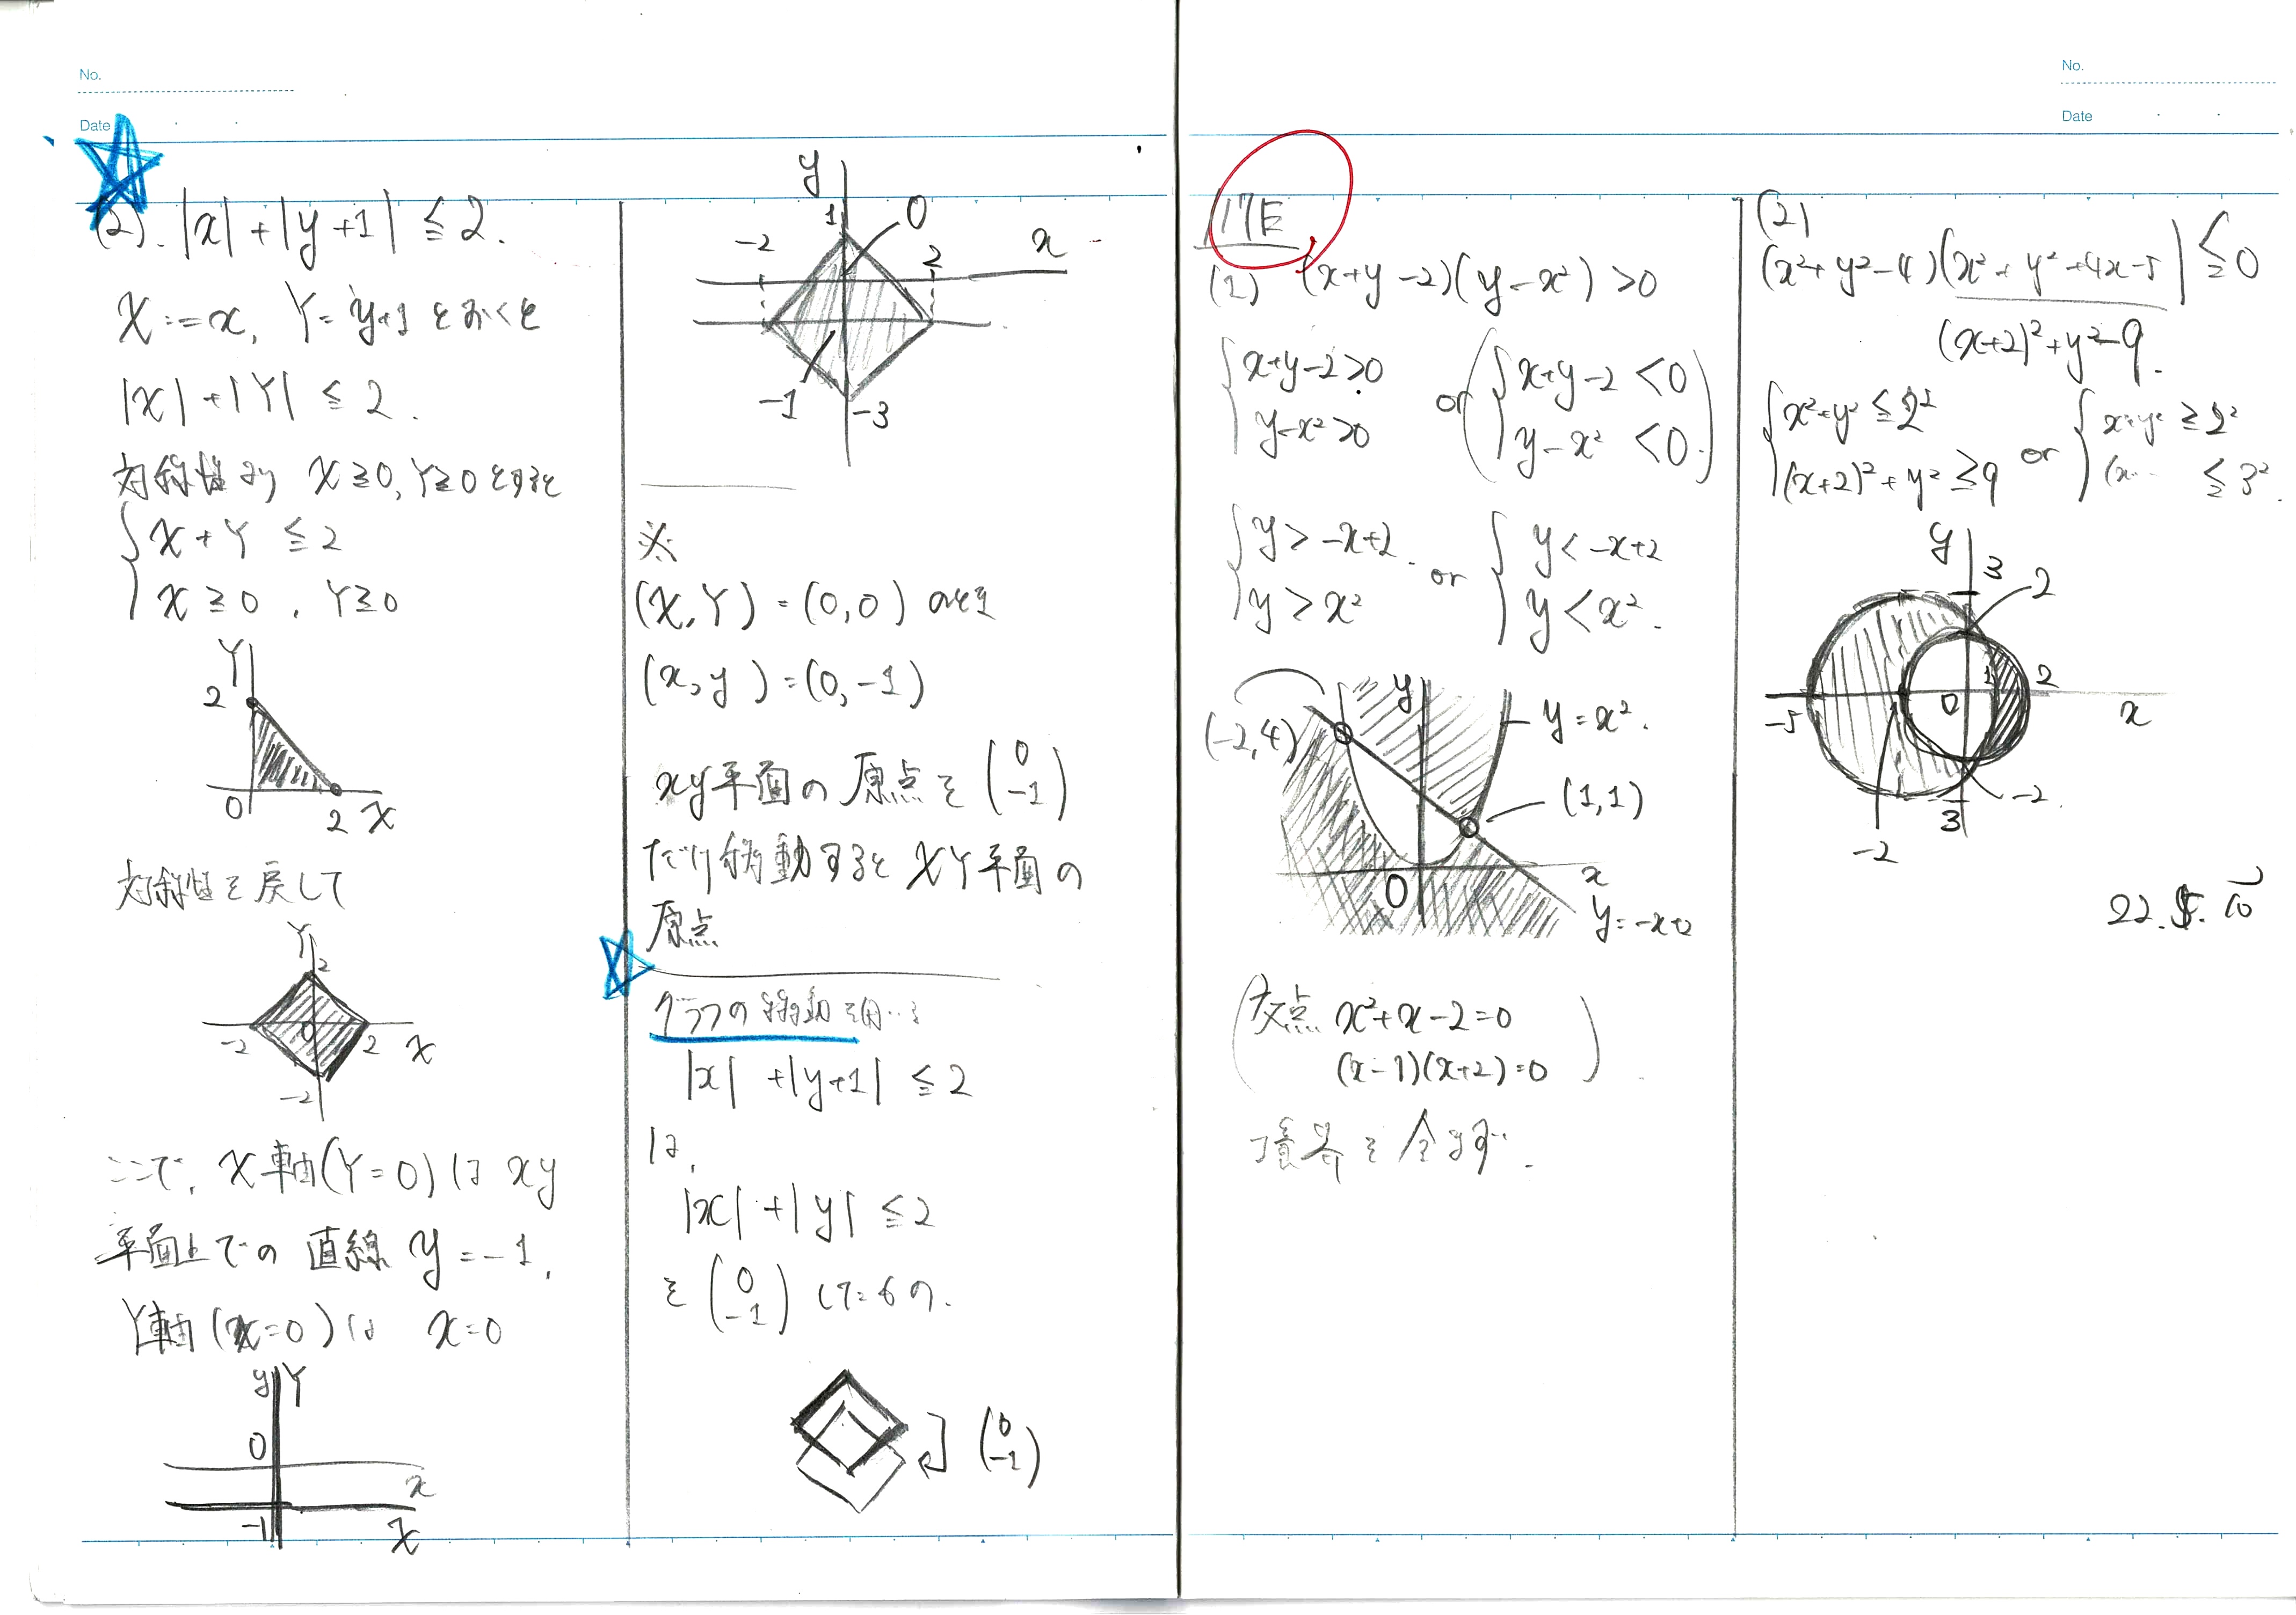 No.
Date
(2). |x| + |y+1| ≦ 2.
X := x, Y = y+1 とおくと
|X| + |Y| ≦ 2.
対称性より X≧0, Y≧0 とすると
{ X + Y ≦ 2
X ≧ 0, Y≧0
Y
2
0
2 X
対称性を戻して
Y
2
-2 0 2 X
-2
ここで, X軸(Y=0)は xy
平面上での 直線 y = -1,
Y軸 (X=0)は x=0
y Y
0
x
-1
X
y
1 0
-2 2 x
-1 -3
※
(X, Y) = (0, 0) のとき
(x, y) = (0, -1)
xy平面の 原点を (0 -1)
だけ移動すると XY平面の
原点
グラフの移動を用
|x| + |y+1| ≦ 2
は,
|x| + |y| ≦ 2
を (0 -1) したもの.
(0 -1)
No.
Date
17E
(1) (x+y-2)(y-x²) > 0
{ x+y-2>0 or ( { x+y-2 <0
y-x²>0 y-x² <0. )
{ y > -x+2. or { y < -x+2
y > x² y < x².
y
y = x².
(-2, 4)
(1, 1)
0
x
y = -x+2
( 交点 x²+x-2=0
(x-1)(x+2)=0 )
境界を含まず.
(2)
(x²+y²-4)(x²+y²+4x-5) ≦ 0
(x+2)²+y²-9.
{ x²+y² ≦ 2² or { x²+y² ≧ 2²
(x+2)²+y² ≧ 9 (x… ≦ 3².
y
3 2
-5 0 1 2
x
-2
3
-2
22. 5. 10